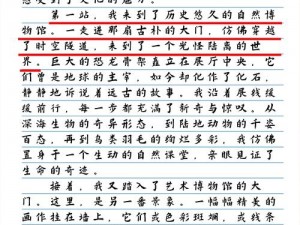 受到了文化的魅力。
第一站，我来到了历史悠久的自然博
物馆。一走进那扇古朴的大门，仿佛穿越
了时空隧道，来到了一个光怪陆离的世
界。巨大的恐龙骨架直立在展厅中央，它
们曾是地球的主宰，如今却化作了化石，
静静地诉说着远古的故事。我沿着展线缓
缓前行，每一步都充满了新奇与惊叹。从
深海生物的奇异形态，到陆地动物的千姿
百态，再到鸟类羽毛的绚烂多彩，我仿佛
置身于一个生动的自然课堂，亲眼见证了
生命的奇迹。
接着，我又踏入了艺术博物馆的大
门。这里，是另一番景象。一幅幅精美的
画作挂在墙上，它们或色彩斑斓，或线条